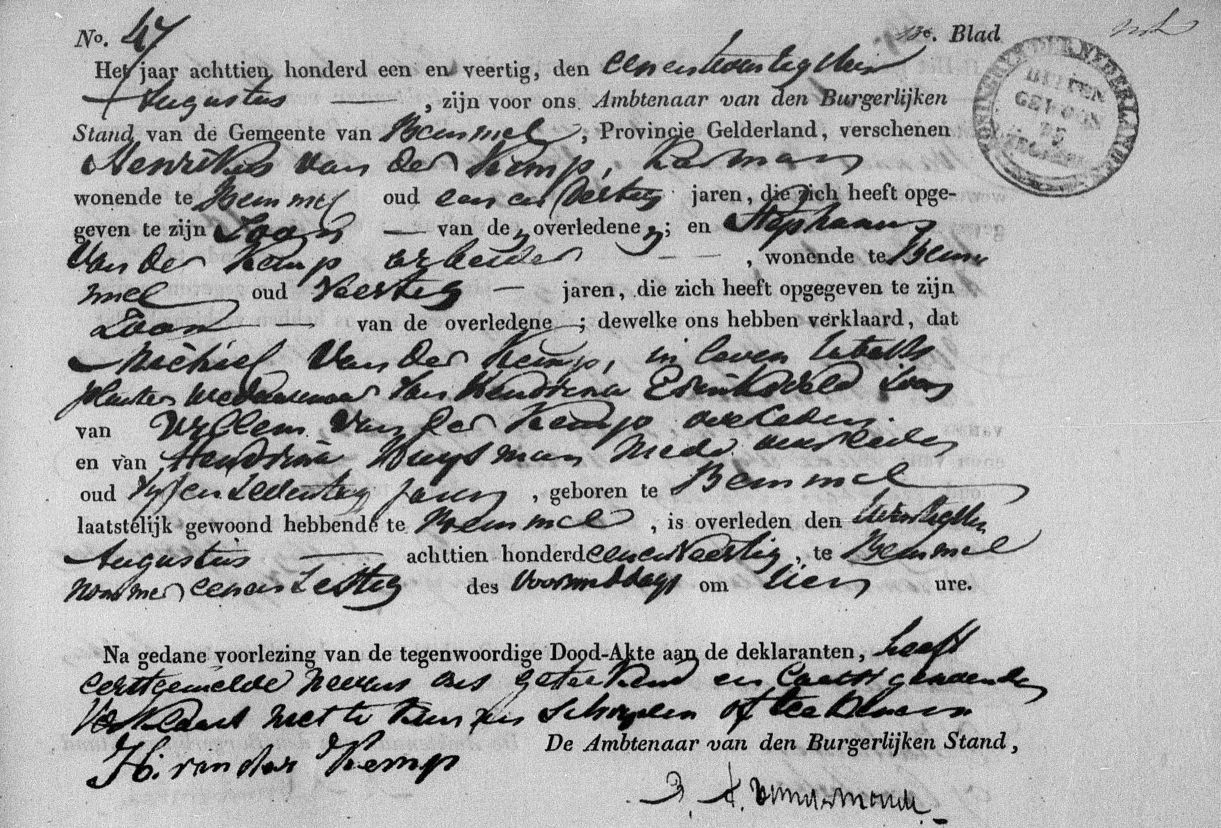 No. 47 Blad
Het jaar achttien honderd een en veertig, den eenentwentigsten
Augustus —, zijn voor ons Ambtenaar van den Burgerlijken
Stand van de Gemeente van Bemmel, Provincie Gelderland, verschenen
Henrikus van der Kemp, Karman
wonende te Bemmel oud een en dertig jaren, die zich heeft opge-
geven te zijn Zoon — van de overledene; en Stephanus
van der Kemp arbeider — —, wonende te Bem
mel oud veertig — jaren, die zich heeft opgegeven te zijn
Zoon — van de overledene; dewelke ons hebben verklaard, dat
Michiel van der Kemp, in leven tabaks
planter weduwenaar van Hendrina Zoon
van Willem van der Kemp overleden
en van Hendrina Huysman mede overleden
oud vyf en zeventig jaren, geboren te Bemmel
laatstelijk gewoond hebbende te Bemmel, is overleden den twintigsten
Augustus — achttien honderd een en veertig, te Bemmel
nommer een en zestig des voormiddags om tien ure.
Na gedane voorlezing van de tegenwoordige Dood-Akte aan de deklaranten, heeft
eerstgemelde nevens ons geteekend en laatstgenoemde
verklaart niet te kunnen schryven of teekenen
De Ambtenaar van den Burgerlijken Stand,
H. van der Kemp